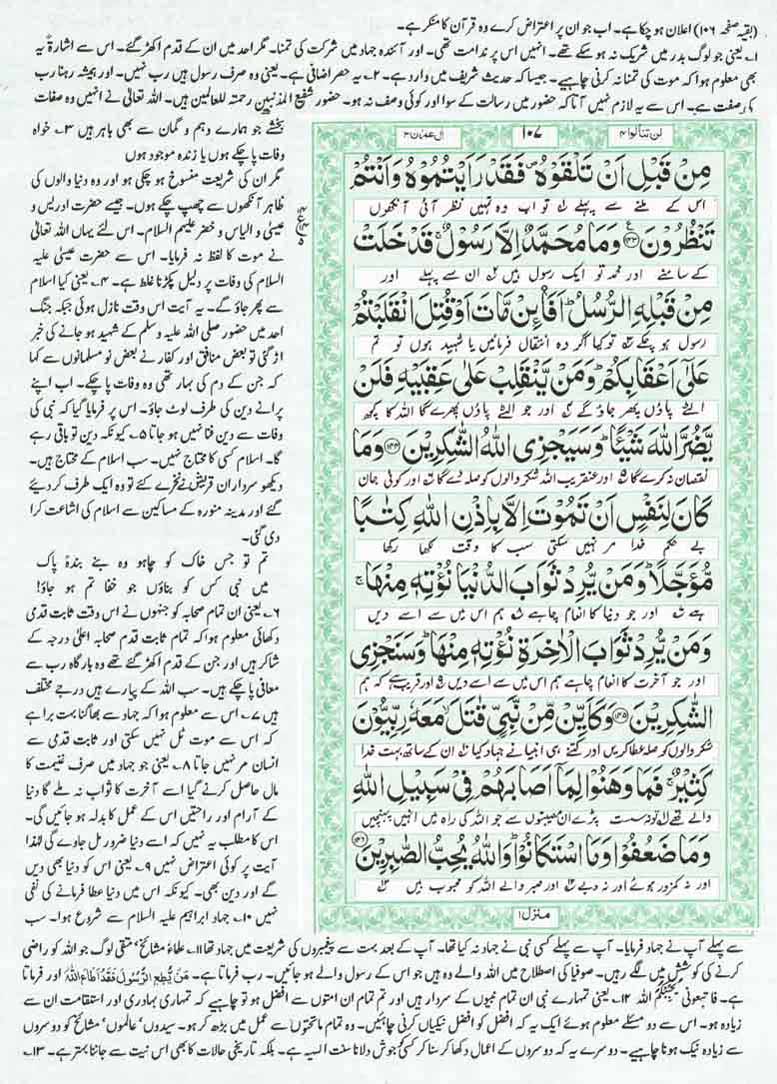 (بقیہ صفحہ ۱۰۶) اعلان ہو چکا ہے۔ اب جو ان پر اعتراض کرے وہ قرآن کا منکر ہے۔
۱؎ یعنی جو لوگ بدر میں شریک نہ ہو سکے تھے۔ انہیں اس پر ندامت تھی۔ اور آئندہ جہاد میں شرکت کی تمنا۔ مگر احد میں ان کے قدم اکھڑ گئے۔ اس سے اشارۃً یہ
بھی معلوم ہوا کہ موت کی تمنا نہ کرنی چاہیے۔ جیسا کہ حدیث شریف میں وارد ہے۔ ۲؎ یہ حصر اضافی ہے۔ یعنی وہ صرف رسول ہیں رب نہیں۔ اور ہمیشہ رہنا رب
کی صفت ہے۔ اس سے یہ لازم نہیں آتا کہ حضور میں رسالت کے سوا اور کوئی وصف نہ ہو۔ حضور شفیع المذنبین رحمۃ للعالمین ہیں۔ اللہ تعالیٰ نے انہیں وہ صفات
بخشے جو ہمارے وہم و گمان سے بھی باہر ہیں ۳؎ خواہ
وفات پا چکے ہوں یا زندہ موجود ہوں
مگر ان کی شریعت منسوخ ہو چکی ہو اور وہ دنیا والوں کی
ظاہر آنکھوں سے چھپ چکے ہوں۔ جیسے حضرت ادریس و
عیسیٰ و الیاس و خضر علیہم السلام۔ اس لئے یہاں اللہ تعالیٰ
نے موت کا لفظ نہ فرمایا۔ اس سے حضرت عیسیٰ علیہ
السلام کی وفات پر دلیل پکڑنا غلط ہے۔ ۴؎ یعنی کیا اسلام
سے پھر جاؤ گے۔ یہ آیت اس وقت نازل ہوئی جبکہ جنگ
احد میں حضور صلی اللہ علیہ وسلم کے شہید ہو جانے کی خبر
اڑ گئی تو بعض منافق اور کفار نے بعض نو مسلمانوں سے کہا
کہ جن کے دم کی بہار تھی وہ وفات پا چکے۔ اب اپنے
پرانے دین کی طرف لوٹ جاؤ۔ اس پر فرمایا گیا کہ نبی کی
وفات سے دین فنا نہیں ہو جاتا ۵؎ کیونکہ دین تو باقی رہے
گا۔ اسلام کسی کا محتاج نہیں۔ سب اسلام کے محتاج ہیں۔
دیکھو سرداران قریش نے نخرے کئے تو وہ ایک طرف کر دیئے
گئے اور مدینہ منورہ کے مساکین سے اسلام کی اشاعت کرا
دی گئی۔
تم تو جس خاک کو چاہو وہ بنے بندہ پاک
میں نبی کس کو بناؤں جو خفا تم ہو جاؤ!
۶؎ یعنی ان تمام صحابہ کو جنہوں نے اس وقت ثابت قدمی
دکھائی معلوم ہوا کہ تمام ثابت قدم صحابہ اعلیٰ درجہ کے
شاکر ہیں اور جن کے قدم اکھڑ گئے تھے وہ بارگاہ رب سے
معافی پا چکے ہیں۔ سب اللہ کے پیارے ہیں درجے مختلف
ہیں ۷؎ اس سے معلوم ہوا کہ جہاد سے بھاگنا بہت برا ہے
کہ اس سے موت ٹل نہیں سکتی اور ثابت قدمی سے
انسان مر نہیں جاتا ۸؎ یعنی جو جہاد میں صرف غنیمت کا
مال حاصل کرنے گیا اسے آخرت کا ثواب نہ ملے گا دنیا
کے آرام اور راحتیں اس کے عمل کا بدلہ ہو جائیں گی۔
اس کا مطلب یہ نہیں کہ اسے دنیا ضرور مل جاوے گی لہٰذا
آیت پر کوئی اعتراض نہیں ۹؎ یعنی اس کو دنیا بھی دیں
گے اور دین بھی۔ کیونکہ اس میں دنیا عطا فرمانے کی نفی
نہیں ۱۰؎ جہاد ابراہیم علیہ السلام سے شروع ہوا۔ سب
لن تنالوا ۴ ۱۰۷ ال عمران ۳
مِنْ قَبْلِ اَنْ تَلْقَوْهُ ۪ فَقَدْ رَاَیْتُمُوْهُ وَاَنْتُمْ
اس کے ملنے سے پہلے تو اب وہ تمہیں نظر آئی آنکھوں
تَنْظُرُوْنَ ﴿۱۴۳﴾ وَمَا مُحَمَّدٌ اِلَّا رَسُوْلٌ ۚ قَدْ خَلَتْ
کے سامنے اور محمد تو ایک رسول ہیں ان سے پہلے اور
مِنْ قَبْلِهِ الرُّسُلُ ؕ اَفَا۠ئِنْ مَّاتَ اَوْ قُتِلَ انْقَلَبْتُمْ
رسول ہو چکے تو کیا اگر وہ انتقال فرمائیں یا شہید ہوں تو تم
عَلٰۤی اَعْقَابِكُمْ ؕ وَمَنْ یَّنْقَلِبْ عَلٰی عَقِبَیْهِ فَلَنْ
الٹے پاؤں پھر جاؤ گے اور جو الٹے پاؤں پھرے گا اللہ کا کچھ
یَّضُرَّ اللّٰهَ شَیْئًا ؕ وَسَیَجْزِی اللّٰهُ الشّٰكِرِیْنَ ﴿۱۴۴﴾ وَمَا
نقصان نہ کرے گا اور عنقریب اللہ شکر والوں کو صلہ دے گا اور کوئی جان
كَانَ لِنَفْسٍ اَنْ تَمُوْتَ اِلَّا بِاِذْنِ اللّٰهِ كِتٰبًا
بے حکم خدا مر نہیں سکتی سب کا وقت لکھا رکھا
مُّؤَجَّلًا ؕ وَمَنْ یُّرِدْ ثَوَابَ الدُّنْیَا نُؤْتِهٖ مِنْهَا ۚ
ہے اور جو دنیا کا انعام چاہے ہم اس میں سے اسے دیں
وَمَنْ یُّرِدْ ثَوَابَ الْاٰخِرَةِ نُؤْتِهٖ مِنْهَا ؕ وَسَنَجْزِی
اور جو آخرت کا انعام چاہے ہم اس میں سے اسے دیں اور قریب ہے کہ ہم
الشّٰكِرِیْنَ ﴿۱۴۵﴾ وَكَاَیِّنْ مِّنْ نَّبِیٍّ قٰتَلَ ۙ مَعَهٗ رِبِّیُّوْنَ
شکر والوں کو صلہ عطا کریں اور کتنے ہی انبیا نے جہاد کیا ان کے ساتھ بہت خدا
كَثِیْرٌ ۚ فَمَا وَهَنُوْا لِمَاۤ اَصَابَهُمْ فِیْ سَبِیْلِ اللّٰهِ
والے تھے تو نہ سست پڑے ان مصیبتوں سے جو اللہ کی راہ میں انہیں پہنچیں
وَمَا ضَعُفُوْا وَمَا اسْتَكَانُوْا ؕ وَاللّٰهُ یُحِبُّ الصّٰبِرِیْنَ ﴿۱۴۶﴾
اور نہ کمزور ہوئے اور نہ دبے اور صبر والے اللہ کو محبوب ہیں
منزل ۱
سے پہلے آپ نے جہاد فرمایا۔ آپ سے پہلے کسی نبی نے جہاد نہ کیا تھا۔ آپ کے بعد بہت سے پیغمبروں کی شریعت میں جہاد تھا ۱۱؎ علماء مشائخ، متقی لوگ جو اللہ کو راضی
کرنے کی کوشش میں لگے رہیں۔ صوفیا کی اصطلاح میں اللہ والے وہ ہیں جو اس کے رسول والے ہو جائیں۔ رب فرماتا ہے۔ مَنْ یُّطِعِ الرَّسُوْلَ فَقَدْ اَطَاعَ اللّٰهَ اور فرماتا
ہے۔ فَاتبعونی یُحْبِبْكُمُ اللہ ۱۲؎ یعنی تمہارے نبی ان تمام نبیوں کے سردار ہیں اور تم تمام ان امتوں سے افضل ہو تو چاہیے کہ تمہاری بہادری اور استقامت ان سے
زیادہ ہو۔ اس سے دو مسئلے معلوم ہوئے ایک یہ کہ افضل کو افضل نیکیاں کرنی چاہئیں۔ وہ تمام ماتحتوں سے عمل میں بڑھ کر ہو۔ سیدوں، عالموں، مشائخ کو دوسروں
سے زیادہ نیک ہونا چاہیے۔ دوسرے یہ کہ دوسروں کے اعمال دکھا کر سنا کر کسی کو جوش دلانا سنت الٰہیہ ہے۔ بلکہ تاریخی حالات کا بھی اس نیت سے جاننا بہتر ہے۔ ۱۳؎